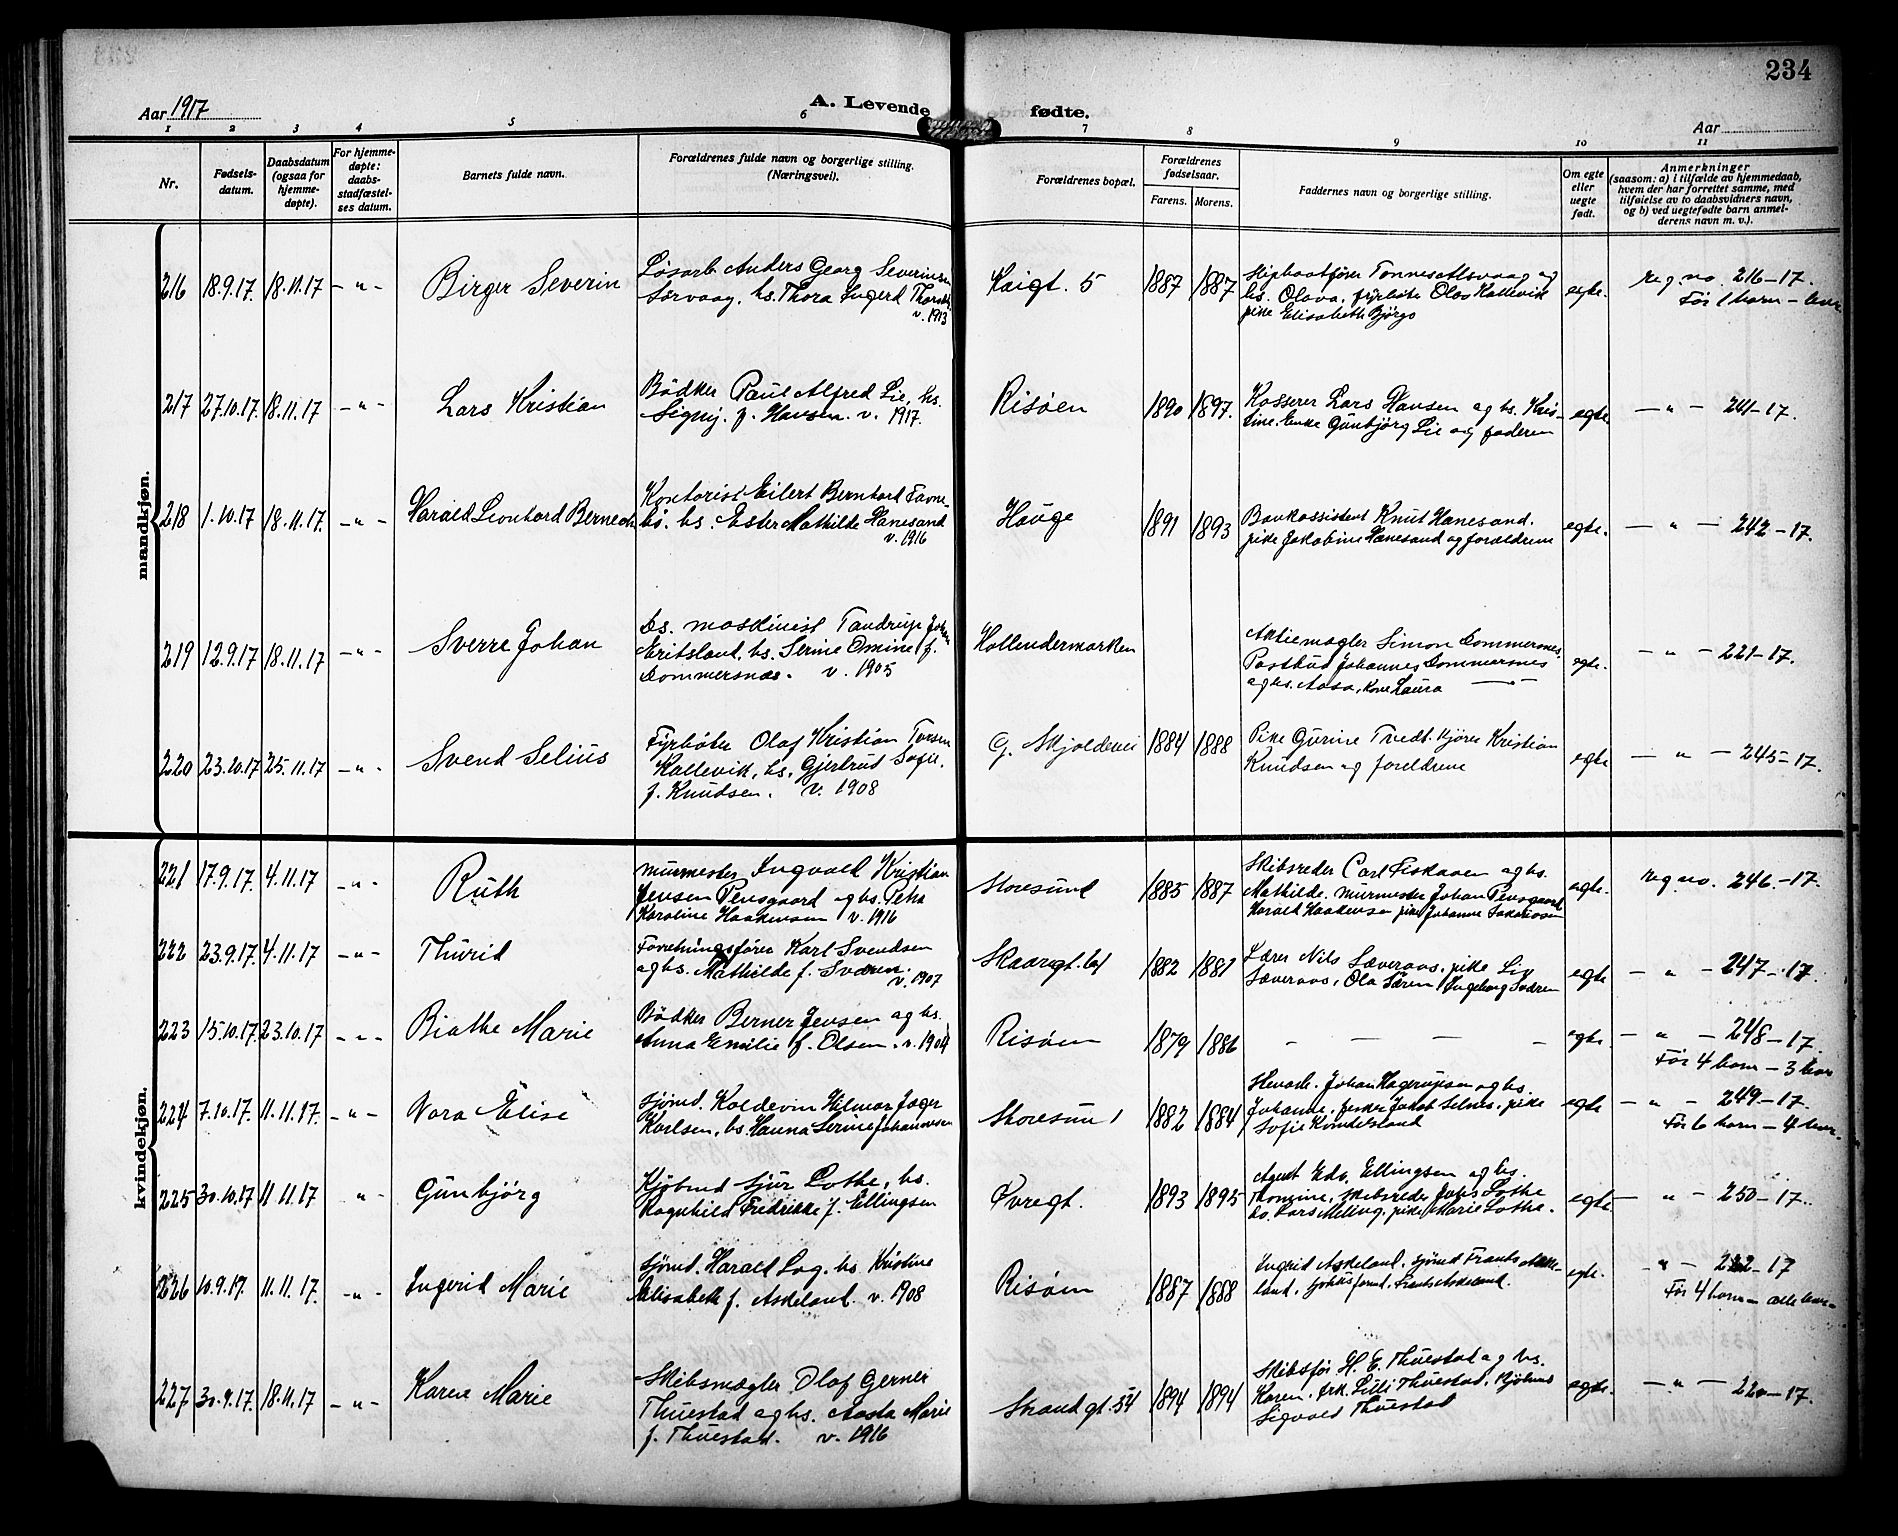 234
Aar 1917
A. Levende fødte.
Aar
1 2 3 4 5 6 7 8 9 10 11
Nr.
Fødsels-
datum.
Daabsdatum
(ogsaa for
hjemme-
døpte).
For hjemme-
døpte:
daabs-
stadfæstel-
ses datum.
Barnets fulde navn.
Forældrenes fulde navn og borgerlige stilling.
(Næringsvei).
Forældrenes bopæl.
Forældrenes
fødselsaar.
Farens. Morens.
Faddernes navn og borgerlige stilling.
Om egte
eller
uegte
født.
Anmerkninger
(saasom: a) i tilfælde av hjemmedaab,
hvem der har forrettet samme, med
tilføielse av to daabsvidners navn,
og b) ved uegtefødte barn anmel-
derens navn m. v.).
mandkjøn.
216 18.9.17 18.11.17 - " - Birger Severin
Løsarb. Anders Georg Severinsen
Sørvaag, hs. Thora Ingerd
v. 1913
Kaigt. 5 1887 1887
Slipbaatfører Tønnes Alsvaag og
hs. Olava, fyrbøter Olav Kallevik
pike Elisabeth Bjørgo
egte.
reg. no. 216-17.
Før 1 barn - lever
217 27.10.17. 18.11.17 - " - Lars Kristian
Bødker Paul Alfred Lie, hs.
Signy. f. Hansen. v. 1917.
Risøen 1890 1897.
Kasserer Lars Hansen og hs. Kris-
tine. Enke Gunbjørg Lie og faderen
egte
- " - 241-17.
218 1.10.17 18.11.17. - " - Harald Leonhard
Kontorist Eilert Bernhard Favne-
bø. hs. Ester Mathilde Hanesand
v. 1916
Hauge 1891 1893
Bankassistent Knut Hanesand.
pike Jakobine Hanesand og forældrene
egte.
- " - 242-17.
219 12.9.17 18.11.17 - " - Sverre Johan
ds. maskinist Tandrup Johan
Eritsland. hs. Serine Omine f.
Sommersnæs. v. 1905
Hollendermarken
Aktiemægler Simon Sommersnes.
Postbud Johannes Sommersnes
og hs. Aasa, kone Laura - " -
egte.
- " - 221-17.
220 23.10.17 25.11.17 - " - Svend Selius
Fyrbøter Olaf Kristian Torsen
Kallevik, hs. Gjertrud Sofie.
f. Knudsen. v. 1908
G. Skjoldevei 1884 1888
Pike Gurine Tvedt. kjører Kristian
Knudsen og foreldrene
egte
- " - 245-17.
kvindekjøn.
221 17.9.17. 4.11.17 - " - Ruth
murmester Ingvald Kristian
Jensen Pensgaard og hs. Petra
Karoline Haakensen v. 1916
Storesund 1885 1887
Skibsreder Carl Fiskaaen og hs.
Mathilde. murmester Johan Pensgaard
Harald Haakensen pike Johanne
egte.
reg. no. 246-17.
222 23.9.17. 4.11.17 - " - Thurid
Forretningsfører Karl Svendsen
og hs. Mathilde f. Sværen.
v. 1907
Skaaregt. 61 1882 1881
Lærer Nils Sæveraas, pike Liv
Sæveraas, Ola Særen, Ingeborg Sværen
egte
- " - 247-17.
223 15.10.17 23.10.17 - " - Biathe Marie
Bødker Berner Jensen og hs.
Anna Emilie f. Olsen. v. 1904
Risøen 1879 1886
- - - -
egte
- " - 248-17.
Før 4 barn - 3 lever
224 7.10.17. 11.11.17. - " - Nora Elise
sjømd. Koldevin Hilmar Jager
Karlsen, hs. Hanna Serine Johannesen
Storesund 1882 1884
Stevad. Johan Hagerupsen og hs.
Johanne, fisker Jakob Selnes, pike
Sofie Kindelsland
egte
- " - 249-17.
Før 6 barn - 4 lever.
225 30.10.17 11.11.17 " - Gunbjørg
Kjøbmd Sjur Lothe, hs.
Ragnhild Fredrikke f. Ellingsen
Øvregt. 1893 1895
Agent Edv. Ellingsen og hs.
Thomine, skibsreder Johs Lothe
Lars Meling. pike Marie Lothe.
egte
- " - 250-17.
226 10.9.17. 11.11.17. - " - Ingerid Marie
sjømd. Harald Log. hs. Kristine
Elisabeth f. Askeland. v. 1908
Risøen 1887 1888
Ingrid Askeland, sjømd Frants Aske-
land, Frants Askeland.
egte.
- " - 222-17
Før 4 barn - alle lever
227 30.9.17. 18.11.17 - " - Karen Marie
Skibsmægler Olaf Gerner
Thuestad og hs. Aasta Marie
f. Thuestad. v. 1916
Strandgt. 54 1894 1894
Skibsfør. H. E. Thuestad og hs.
Karen, frk. Lilli Thuestad,
Sigvald Thuestad
egte.
- " - 220-17.